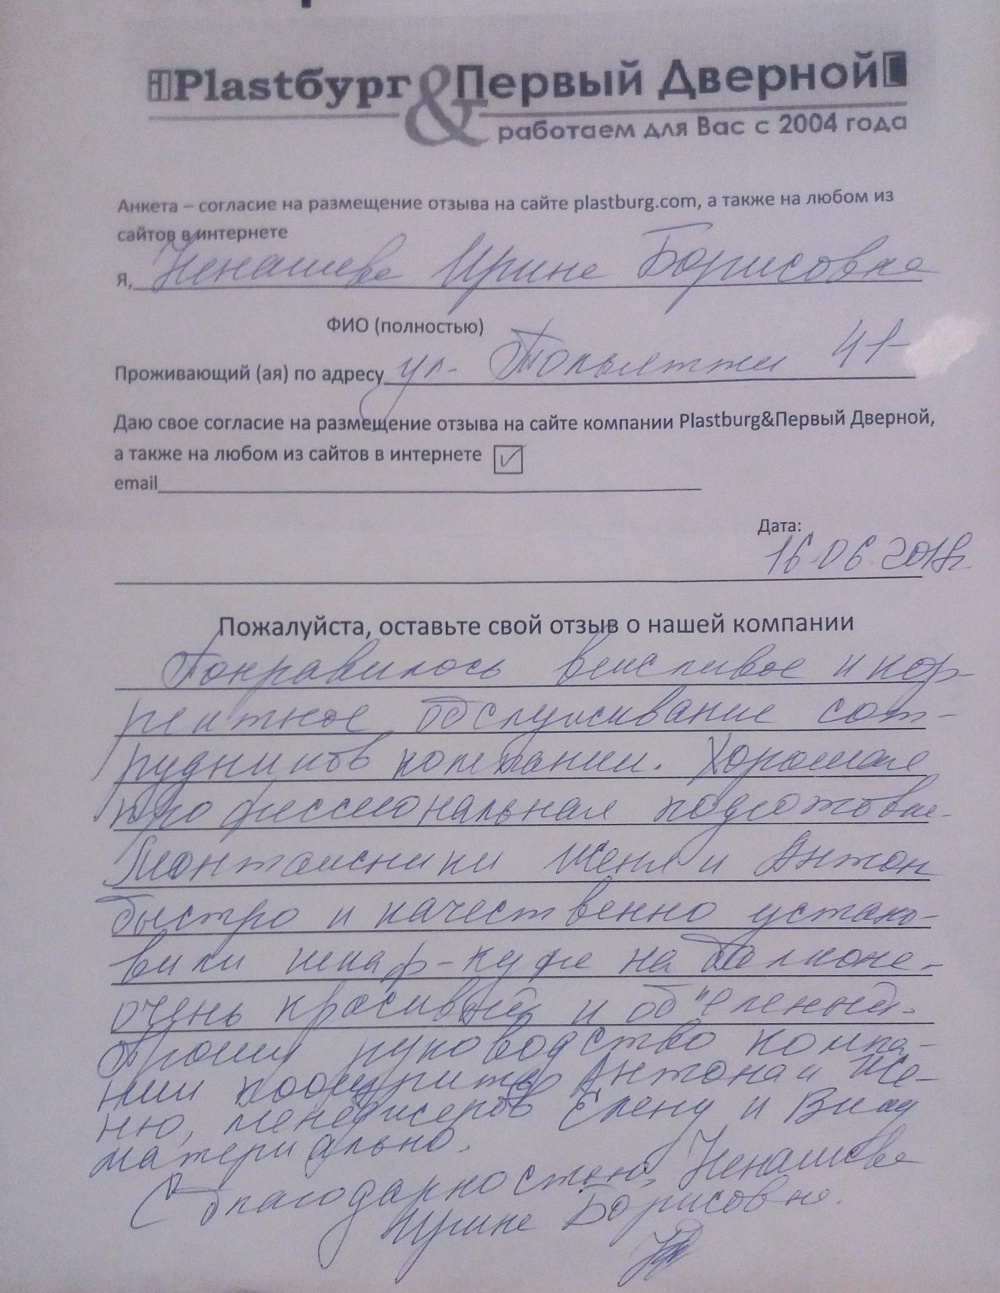 Plastбург & Первый Дверной
работаем для Вас с 2004 года
Анкета – согласие на размещение отзыва на сайте plastburg.com, а также на любом из
сайтов в интернете
Я, Ненашева Ирина Борисовна
ФИО (полностью)
Проживающий (ая) по адресу ул. Тольятти 41-
Даю свое согласие на размещение отзыва на сайте компании Plastburg&Первый Дверной,
а также на любом из сайтов в интернете ✓
email
Дата:
16.06.2018г.
Пожалуйста, оставьте свой отзыв о нашей компании
Понравилось вежливое и кор-
ректное обслуживание сот-
рудников компании. Хорошая
профессиональная подготовка.
Монтажники Женя и Антон
быстро и качественно устано-
вили шкаф-купе на балконе.
очень красивый и объемный.
Прошу руководство компа-
нии поощрить Антона и Же-
ню, менеджеров Елену и Владу
материально.
С благодарностью, Ненашева
Ирина Борисовна.